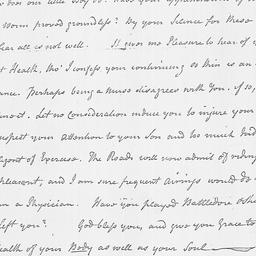 does our little Boy do? have your apprehensions of
worm proved groundless? by your Silence for these
fear all is not well. It gives me Pleasure to hear of
t Health, tho' I confess your continuing so thin is an
ance. Perhaps being a nurse disagrees with you. if so,
Let no Consideration induce you to injure your
uspect your Attention to your Son and too much Ind
want of Exercise. The Roads will now admit of riding
pleasant, and I am sure frequent Airings would do
n a Physician. Have you played Battledore &
left you? God bless you, and give you Grace to
ealth of your Body as well as your Soul